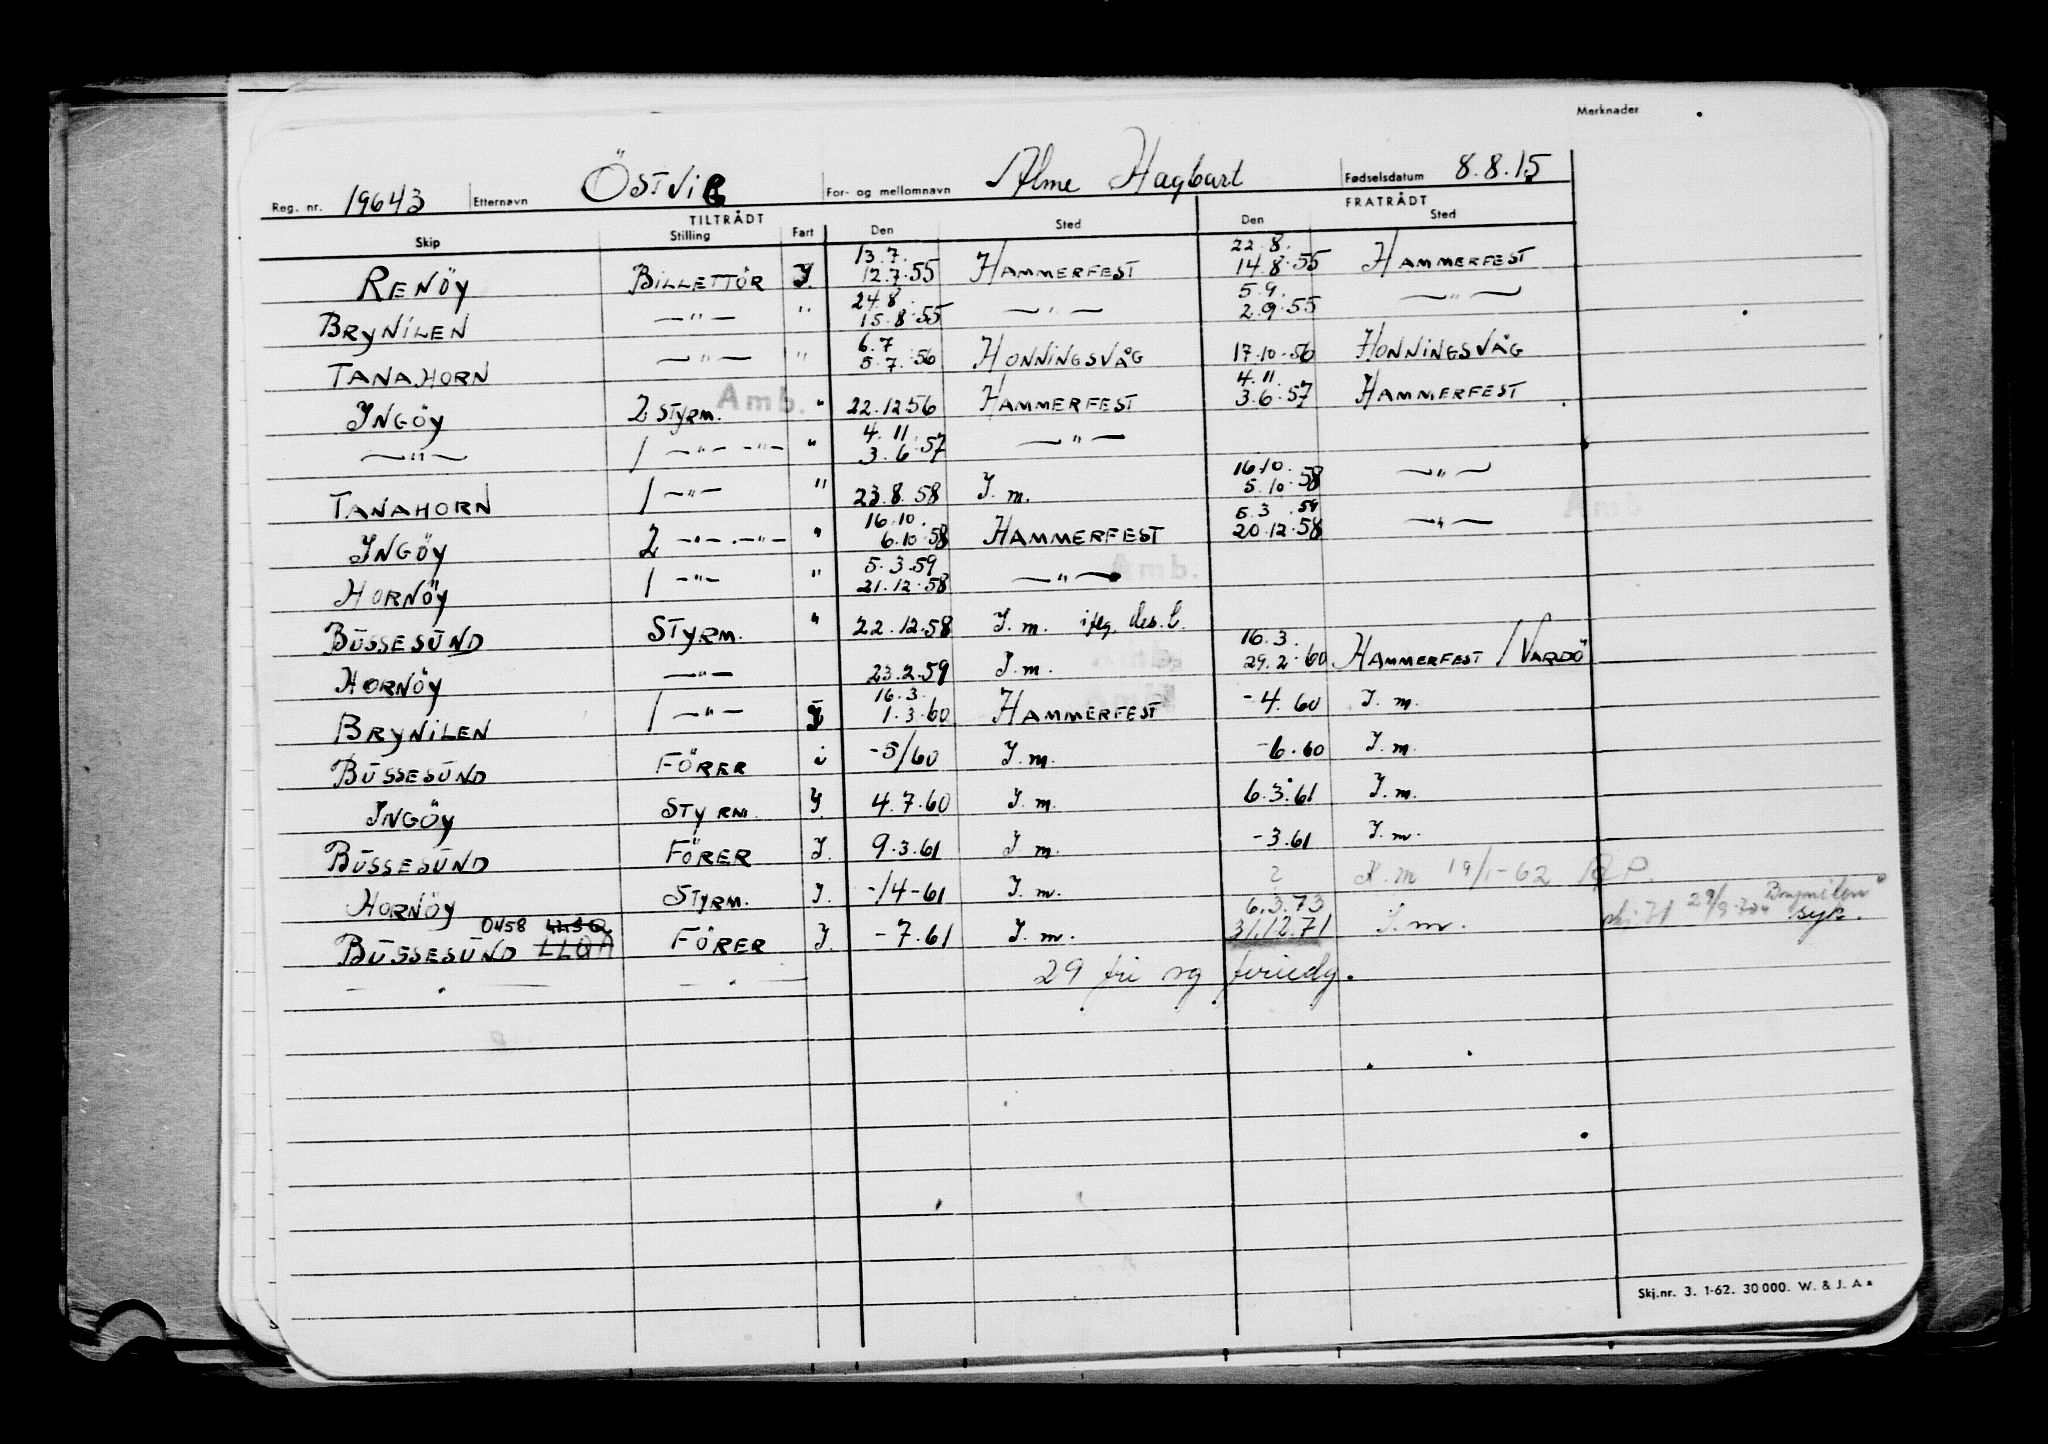 Merknader
Reg. nr. 19643 Etternavn ÖSTVIG For- og mellomnavn Alme Hagbart Fødselsdatum 8.8.15
TILTRÅDT FRATRÅDT
Skip Stilling Fart Den Sted Den Sted
13.7. 22.8.
RENÖY BILLETTÖR I. 12.7.55 HAMMERFEST 14.8.55 HAMMERFEST
24.8. 5.9.
BRYNILEN —"— " 15.8.55 —"— 2.9.55 —"—
6.7
TANAHORN —"— " 5.7.56 HONNINGSVÅG 17.10.56 HONNINGSVÅG
4.11.
INGÖY 2 STYRM. Amb. " 22.12.56 HAMMERFEST 3.6.57 HAMMERFEST
4.11.
—"— 1 —"— —"— " 3.6.57 —"—
16.10.
TANAHORN 1 —"— " 23.8.58 I.m. 5.10.58 —"—
16.10. 5.3.59
INGÖY 2 —"— —"— " 6.10.58 HAMMERFEST 20.12.58 —"—
5.3.59
HORNÖY 1 —"— " 21.12.58 —"—
BUSSESUND STYRM. " 22.12.58 I.m. iflg.
16.3.
HORNÖY —"— 23.2.59 I.m. 29.2.60 HAMMERFEST / VARDÖ
16.3.
BRYNILEN 1 —"— I 1.3.60 HAMMERFEST -4.60 I.m.
BUSSESUND FÖRER i -5/60 I.m. -6.60 I.m.
INGÖY STYRM. I 4.7.60 I.m. 6.3.61 I.m.
BUSSESUND FÖRER I. 9.3.61 I.m. -3.61 I.m.
HORNÖY STYRM. I. -/4-61 I.m. ? I.m 19/1-62
0458 6.3.73 Brynilen
BUSSESUND LLQA FÖRER I. -7.61 I.m. 31.12.71 I.m. syk.
—"— —"— 29 fri og feriedg.
Skj.nr. 3. 1-62. 30000. W. & J. A s